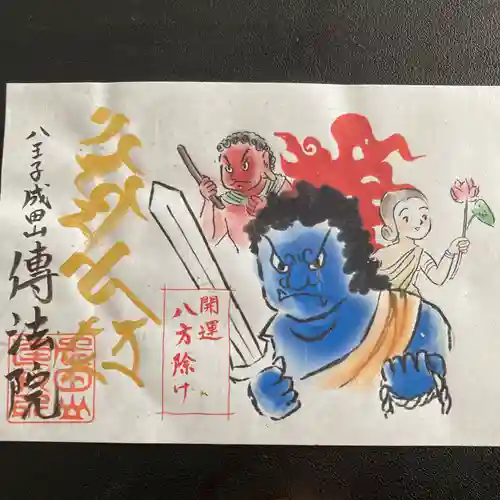 開運
八方除け
八王子成田山
傳法院